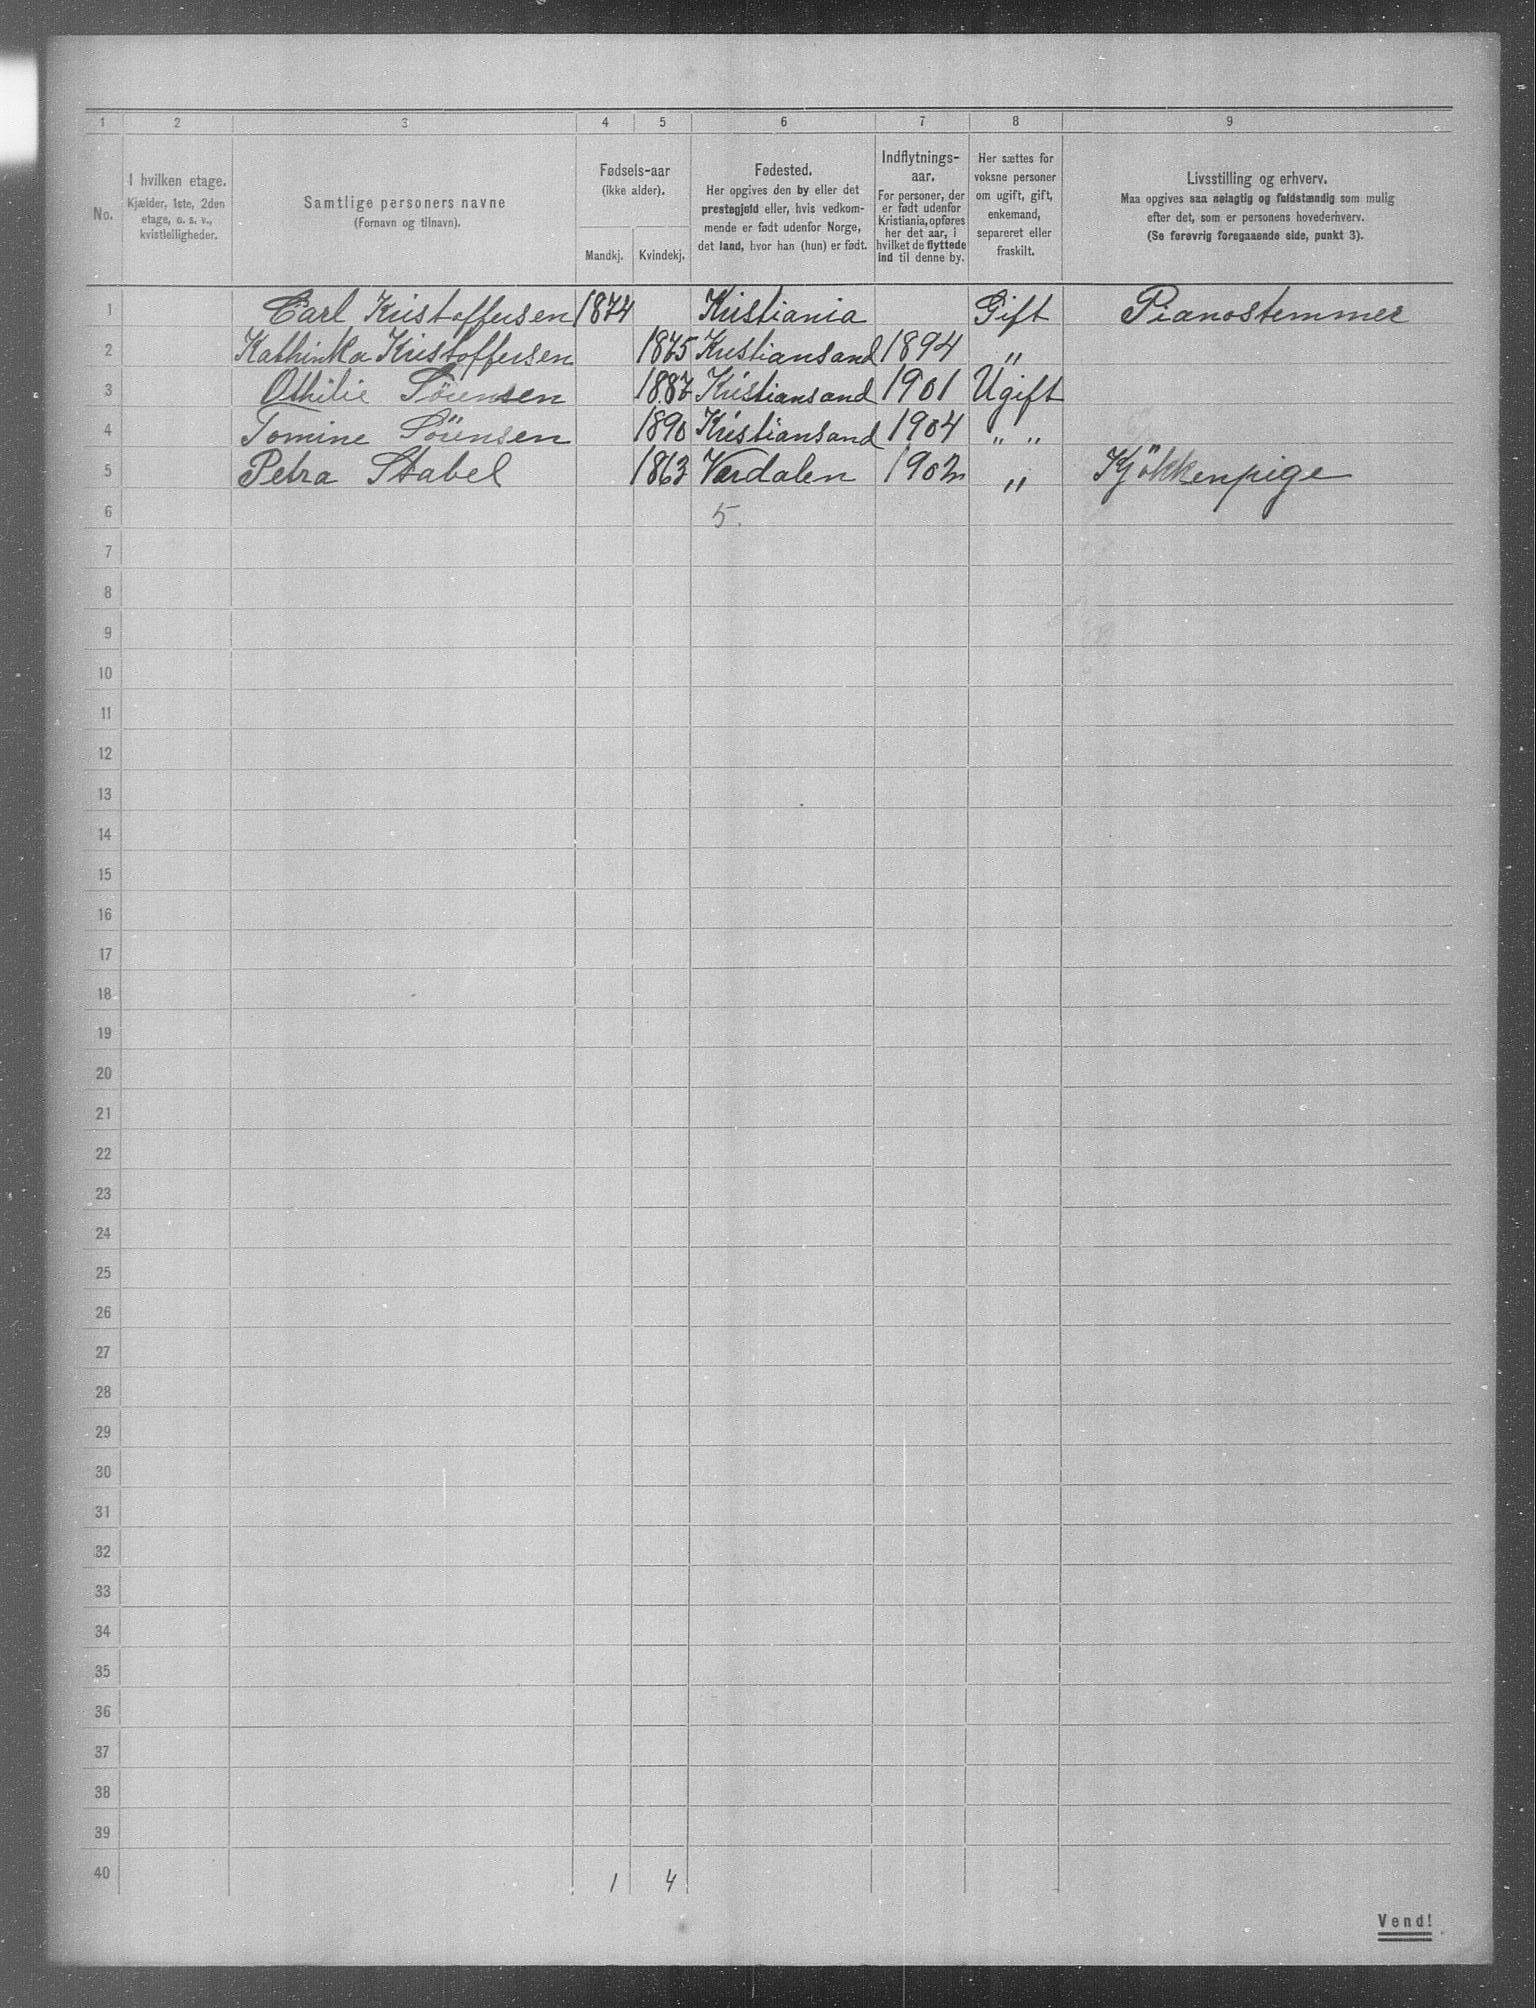 1 2 3 4 5 6 7 8 9
No. I hvilken etage. Kjælder, 1ste, 2den etage, o. s. v., kvistleiligheder. Samtlige personers navne (Fornavn og tilnavn). Fødsels-aar (ikke alder). Mandkj. Kvindekj. Fødested. Her opgives den by eller det prestegjeld eller, hvis vedkommende er født udenfor Norge, det land, hvor han (hun) er født. Indflytnings-aar. For personer, der er født udenfor Kristiania, opføres her det aar, i hvilket de flyttede ind til denne by. Her sættes for voksne personer om ugift, gift, enkemand, separeret eller fraskilt. Livsstilling og erhverv. Maa opgives saa nøiagtig og fuldstændig som mulig efter det, som er personens hovederhverv. (Se forøvrig foregaaende side, punkt 3).
1 Carl Kristoffersen 1874 Kristiania Gift Pianostemmer
2 Kathinka Kristoffersen 1875 Kristiansand 1894 "
3 Othilie Sörensen 1887 Kristiansand 1901 Ugift
4 Tomine Sörensen 1890 Kristiansand 1904 " "
5 Petra Stabel 1863 Værdalen 1902 " Kjökkenpige
6 5.
7
8
9
10
11
12
13
14
15
16
17
18
19
20
21
22
23
24
25
26
27
28
29
30
31
32
33
34
35
36
37
38
39
40 1 4
Vend!